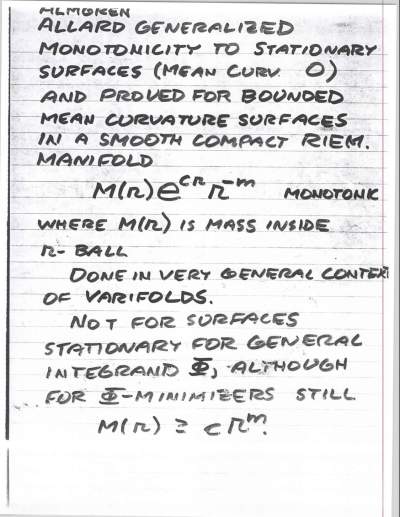 ALMGREN
ALLARD GENERALIZED
MONOTONICITY TO STATIONARY
SURFACES (MEAN CURV. 0)
AND PROVED FOR BOUNDED
MEAN CURVATURE SURFACES
IN A SMOOTH COMPACT RIEM.
MANIFOLD
M(r)e^{cr} r^{-m} MONOTONIC
WHERE M(r) IS MASS INSIDE
r- BALL
DONE IN VERY GENERAL CONTEXT
OF VARIFOLDS.
NOT FOR SURFACES
STATIONARY FOR GENERAL
INTEGRAND Φ, ALTHOUGH
FOR Φ-MINIMIZERS STILL
M(r) ≥ cr^m.